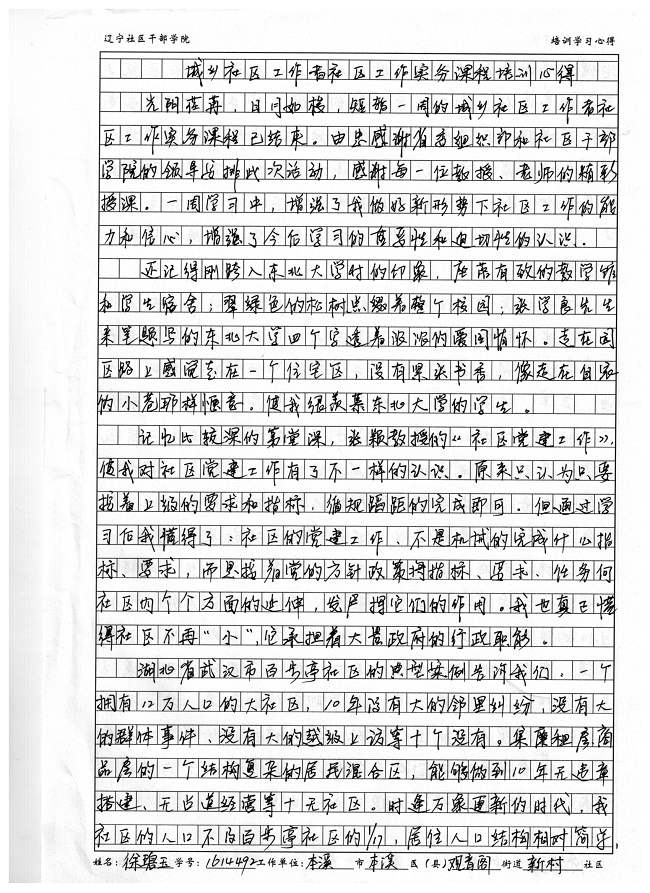 辽宁社区干部学院 培训学习心得
城乡社区工作者社区工作实务课程培训心得
光阴荏苒,日月如梭,短暂一周的城乡社区工作者社
区工作实务课程已结束。由衷感谢省委组织部和社区干部
学院的领导安排此次活动,感谢每一位教授、老师的精彩
授课。一周学习中,增强了我做好新形势下社区工作的能
力和信心,增强了今后学习的重要性和迫切性的认识。
还记得刚踏入东北大学时的印象,庄肃有致的教学馆
和学生宿舍;翠绿色的松树点缀着整个校园;张学良先生
亲笔题写的东北大学四个字透着浓浓的爱国情怀。走在园
区路上感觉走在一个住宅区,没有果张书香,像走在自家
的小巷那样惬意。使我很羡慕东北大学的学生。
记忆比较深的第堂课,张颖教授的《社区党建工作》,
使我对社区党建工作有了不一样的认识。原来只认为只要
按着上级的要求和指标,循规蹈距的完成即可。但通过学
习后我懂得了:社区的党建工作、不是机械的完成什么指
标、要求,而是指着党的方针政策将指标、要求、任务向
社区内个个方面的延伸,发挥它们的作用。我也真正懂
得社区不再“小”,它承担着大量政府的行政职能。
湖北省武汉市百步亭社区的典型案例告诉我们,一个
拥有12万人口的大社区,10年没有大的邻里纠纷,没有大
的群体事件、没有大的越级上访等十个没有。集廉租房商
品房的一个结构复杂的居民混合区,能够做到10年无违章
搭建、无占道经营等十无社区。时逢万象更新的时代,我
社区的人口不及百步亭社区的1/17,居住人口结构相对简单,
姓名:徐碧玉学号:1614492工作单位:本溪 市 本溪 区(县)观音阁 街道 新村 社区